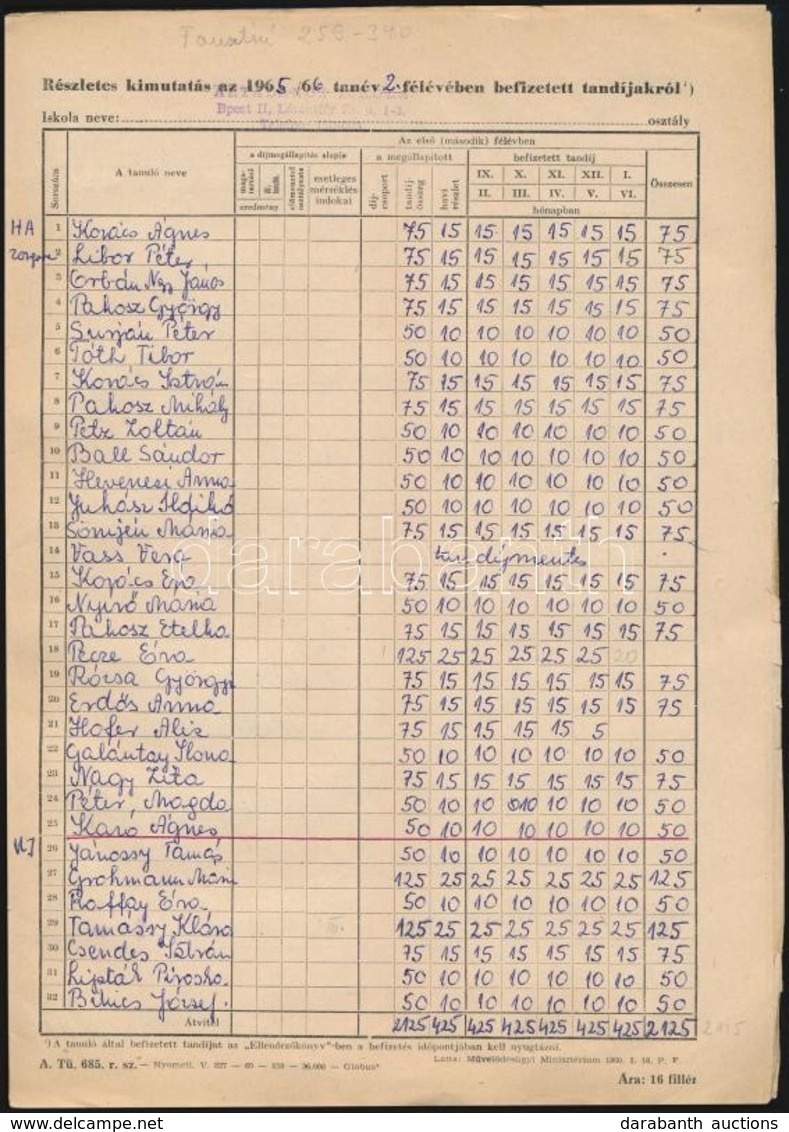 Részletes kimutatás az 1965/66 tanév 2. félévében befizetett tandíjakról ¹)
Bpest II,
Iskola neve: osztály
Az első (második) félévben
a díjmegállapítás alapja a megállapított befizetett tandíj
Sorszám A tanuló neve előmenetel osztályzata esetleges mérséklés indokai díjcsoport tandíjösszeg havi részlet IX. X. XI. XII. I. Összesen
eredmény II. III. IV. V. VI.
hónapban
HA 1 Kovács Ágnes 75 15 15 15 15 15 15 75
2 Libor Péter, 75 15 15 15 15 15 15 75
3 Orbán Nagy János 75 15 15 15 15 15 15 75
4 Pahosz György 75 15 15 15 15 15 15 75
5 Surján Péter 50 10 10 10 10 10 10 50
6 Tóth Tibor 50 10 10 10 10 10 10 50
7 Kovács István 75 15 15 15 15 15 15 75
8 Pahosz Mihály 75 15 15 15 15 15 15 75
9 Petz Zoltán 50 10 10 10 10 10 10 50
10 Ball Sándor 50 10 10 10 10 10 10 50
11 Hevenesi Anna 50 10 10 10 10 10 10 50
12 Juhász Ildikó 50 10 10 10 10 10 10 50
13 Somjén Mária 75 15 15 15 15 15 15 75
14 Vass Vera tandíjmentes
15 Kovács Éva 75 15 15 15 15 15 15 75
16 Nyirő Mária 50 10 10 10 10 10 10 50
17 Pahosz Etelka 75 15 15 15 15 15 15 75
18 Pecze Éva 125 25 25 25 25 25 20
19 Rózsa Györgyi 75 15 15 15 15 15 15 75
20 Erdős Anna 75 15 15 15 15 15 15 75
21 Hofer Aliz 75 15 15 15 15 5
22 Galántay Ilona 50 10 10 10 10 10 10 50
23 Nagy Zita 75 15 15 15 15 15 15 75
24 Péter, Magda 50 10 10 010 10 10 10 50
25 Karó Ágnes 50 10 10 10 10 10 10 50
26 Jánossy Tamás 50 10 10 10 10 10 10 50
27 Grohmann Mária 125 25 25 25 25 25 25 125
28 Raffay Éva 50 10 10 10 10 10 10 50
29 Tamássy Klára III. 125 25 25 25 25 25 25 125
30 Csendes István 75 15 15 15 15 15 15 75
31 Lipták Piroska 50 10 10 10 10 10 10 50
32 József. 50 10 10 10 10 10 10 50
Átvitel 2125 425 425 425 425 425 425 2125
¹) A tanuló által befizetett tandíjat az „Ellenőrzőkönyv"-ben a befizetés időpontjában kell nyugtázni.
A. Tü. 685. r. sz. — Nyomell. V. — 36.000 — Globus Művelődésügyi Minisztérium 1960. I. P. F.
Ára: 16 fillér
darabanth
www.darabanth.com darabanth auctions